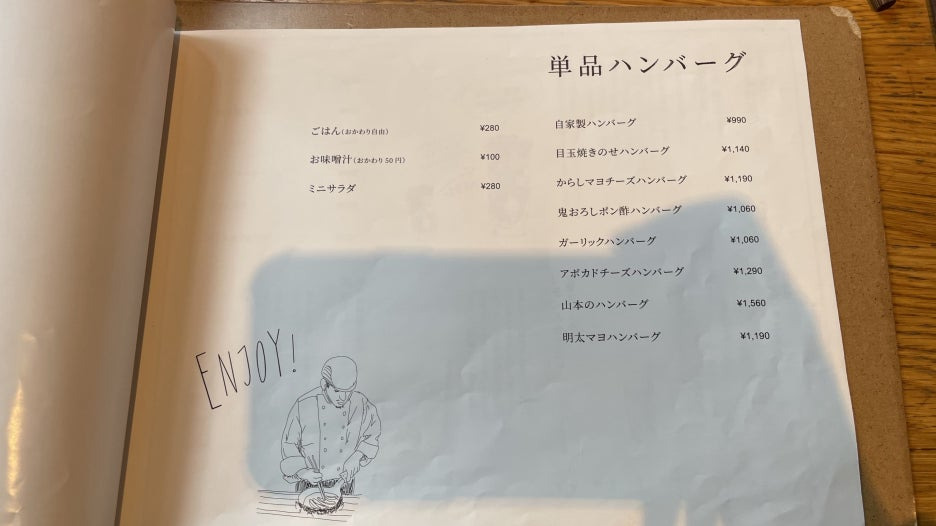 単品ハンバーグ
ごはん(おかわり自由) ¥280
お味噌汁(おかわり50円) ¥100
ミニサラダ ¥280
自家製ハンバーグ ¥990
目玉焼きのせハンバーグ ¥1,140
からしマヨチーズハンバーグ ¥1,190
鬼おろしポン酢ハンバーグ ¥1,060
ガーリックハンバーグ ¥1,060
アボカドチーズハンバーグ ¥1,290
山本のハンバーグ ¥1,560
明太マヨハンバーグ ¥1,190
ENJOY!